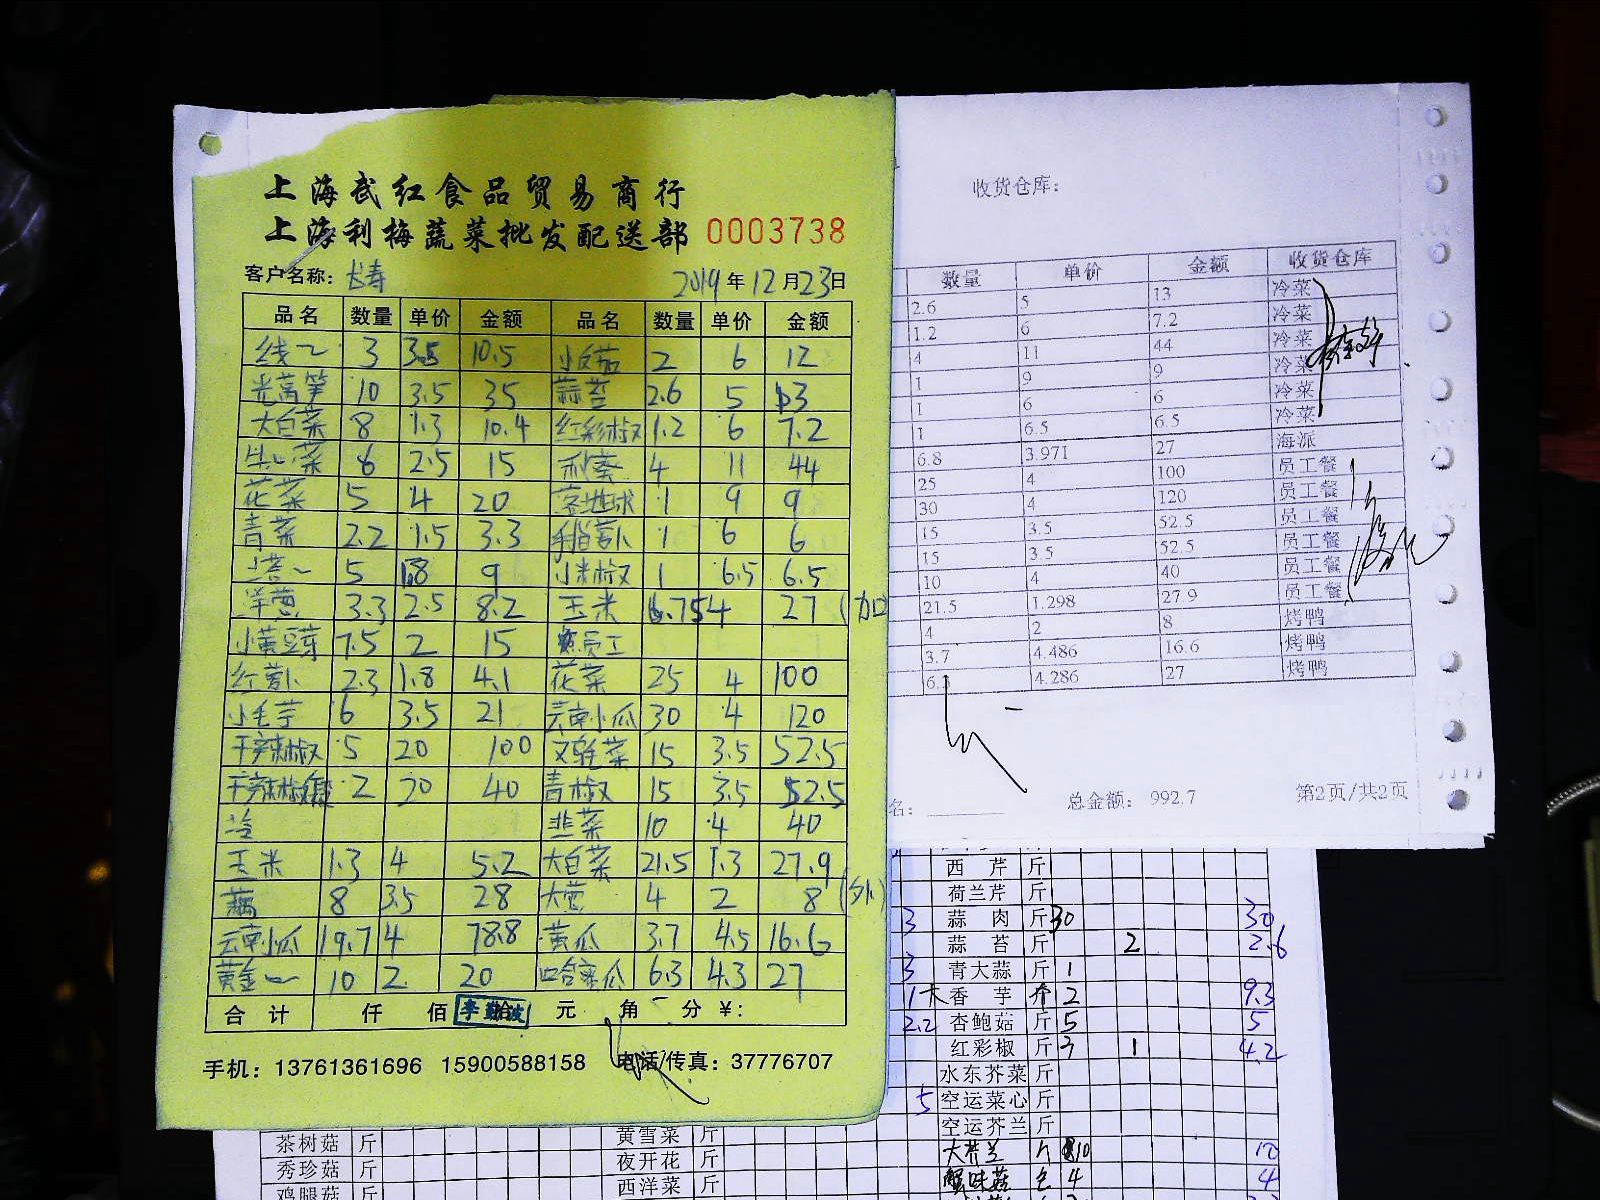 上海武红食品贸易商行
上海利梅蔬菜批发配送部 0003738
客户名称: 长寿 2019年12月23日
品名 数量 单价 金额 品名 数量 单价 金额
3 3.5 10.5 2 6 12
光莴笋 10 3.5 35 蒜苔 2.6 5 13
大白菜 8 1.3 10.4 红彩椒 1.2 6 7.2
牛心菜 6 2.5 15 4 11 44
花菜 5 4 20 1 9 9
青菜 2.2 1.5 3.3 1 6 6
5 1.8 9 小米椒 1 6.5 6.5
洋葱 3.3 2.5 8.2 玉米 6.75 4 27
小黄豆芽 7.5 2 15 员工
红萝卜 2.3 1.8 4.1 花菜 25 4 100
小毛芋 6 3.5 21 云南小瓜 30 4 120
干辣椒 5 20 100 15 3.5 52.5
干辣椒 2 20 40 青椒 15 3.5 52.5
冷 韭菜 10 4 40
玉米 1.3 4 5.2 大白菜 21.5 1.3 27.9
藕 8 3.5 28 大葱 4 2 8
云南小瓜 19.7 4 78.8 黄瓜 3.7 4.5 16.6
10 2 20 6.3 4.3 27
合计 仟 佰 拾 元 角 分 ¥:
手机: 13761361696 15900588158 电话/传真: 37776707
收货仓库:
数量 单价 金额 收货仓库
2.6 5 13 冷菜
1.2 6 7.2 冷菜
4 11 44 冷菜
1 9 9 冷菜
1 6 6 冷菜
1 6.5 6.5 冷菜
6.8 3.971 27 海派
25 4 100 员工餐
30 4 120 员工餐
15 3.5 52.5 员工餐
15 3.5 52.5 员工餐
10 4 40 员工餐
21.5 1.298 27.9 员工餐
4 2 8 烤鸭
3.7 4.486 16.6 烤鸭
6.3 4.286 27 烤鸭
名: 总金额: 992.7 第2页/共2页
西芹 斤
荷兰芹 斤
3 蒜肉 斤 30 30
蒜苔 斤 2 2.6
3 青大蒜 斤 1
香芋 2 9.3
2.2 杏鲍菇 斤 5 5
红彩椒 斤 3 1 4.2
水东芥菜 斤
5 空运菜心 斤
空运芥兰 斤
茶树菇 斤 黄雪菜 斤 大芥兰 斤 10 10
秀珍菇 斤 夜开花 斤 蟹味菇 4 4
鸡腿菇 斤 西洋菜 斤